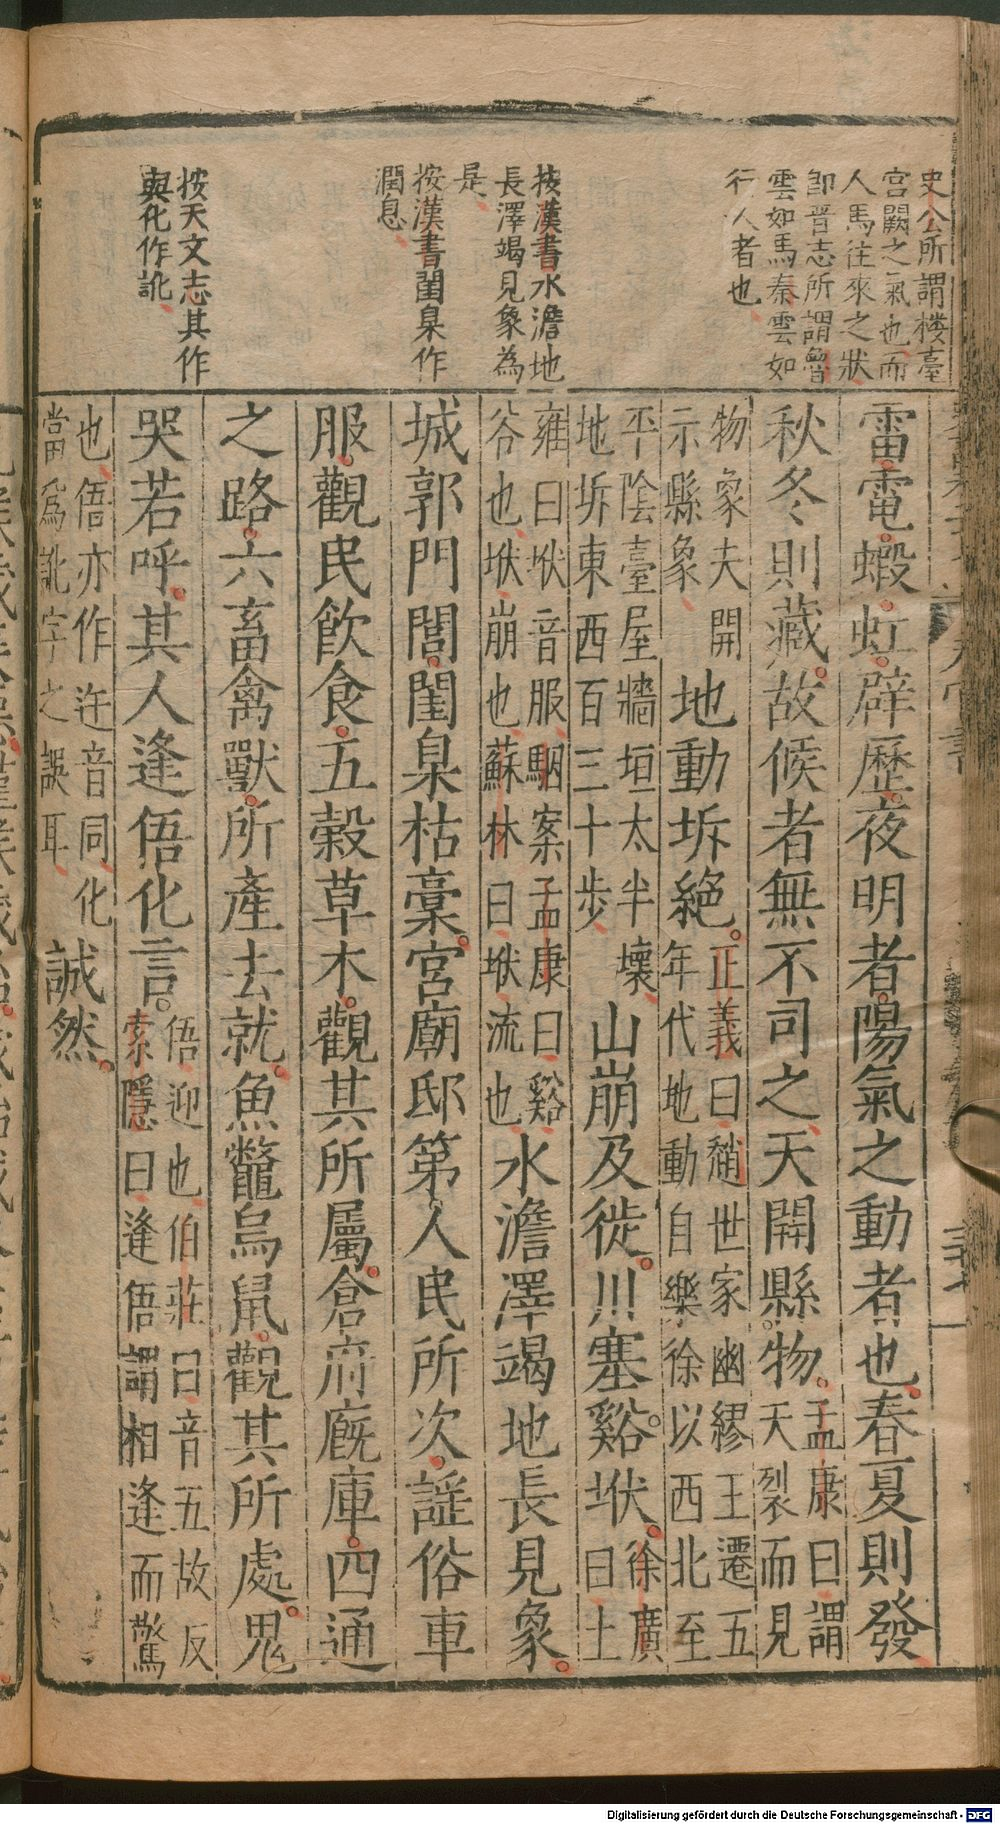 史公所謂樓臺
宮闕之氣也而
人馬往來之狀
卽晉志所謂魯
雲如馬秦雲如
行人者也
按漢書水澹地
長澤竭見象為
是
按漢書閨臬作
潤息
按天文志其作
與化作訛
雷電蝦虹辟歷夜明者陽氣之動者也春夏則發
秋冬則藏故候者無不司之天開縣物孟康曰謂
天裂而見
物象夫開
示縣象
地動坼絕正義曰趙世家幽繆王遷五
年代地動自樂徐以西北至
平陰臺屋牆垣太半壞
地坼東西百三十步
山崩及徙川塞谿垘徐廣
曰土
雍曰垘音服駰案孟康曰谿
谷也垘崩也蘇林曰垘流也
水澹澤竭地長見象
城郭門閭閨臬枯槀宮廟邸第人民所次謠俗車
服觀民飲食五穀草木觀其所屬倉府廐庫四通
之路六畜禽獸所產去就魚鼈烏鼠觀其所處鬼
哭若呼其人逢俉化言俉迎也伯莊曰音五故反
索隱曰逢俉謂相逢而驚
也俉亦作迕音同化
當爲訛字之誤耳
誠然
Digitalisierung gefördert durch die Deutsche Forschungsgemeinschaft - DFG